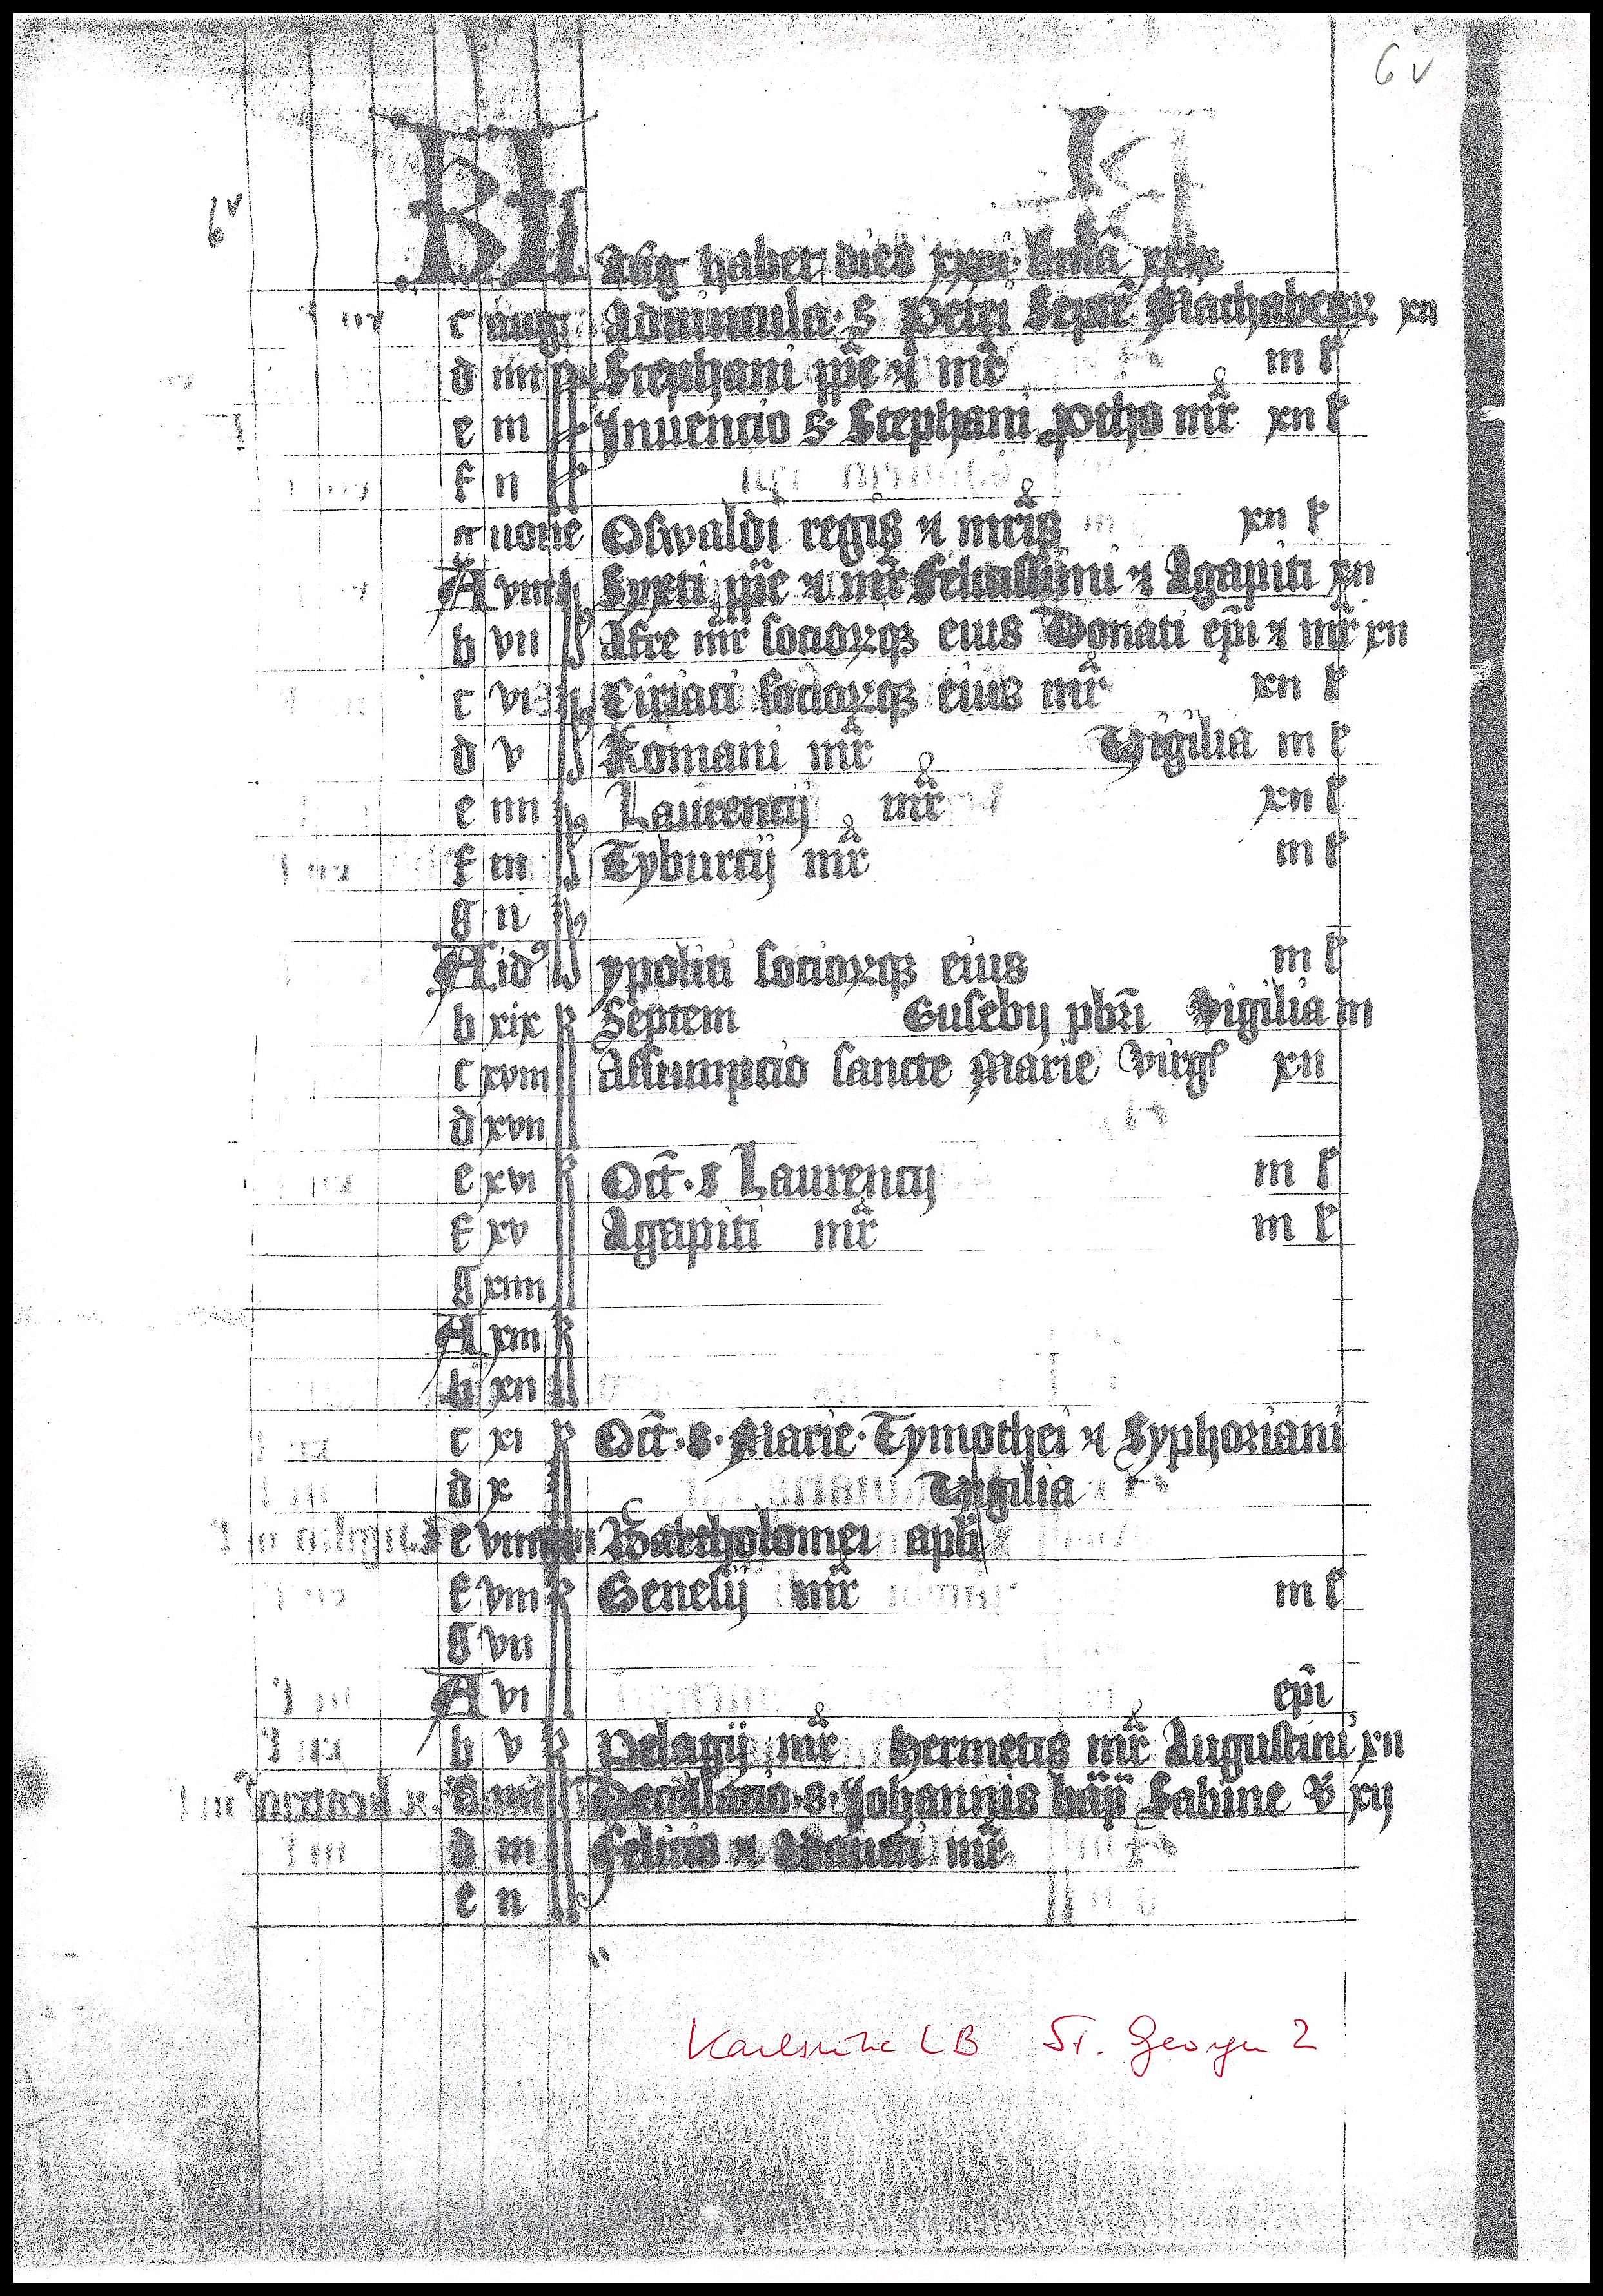 6v
6v
KL
Aug habet dies xxxi luna xxix
c aug Aduincula · S Petri Septē Machabeoꝝ xii
d iiii N Stephani pͣpe ⁊ mr̄ iii l
e iii N Inuencio S Stephani ptho mr̄ xii l
f ii N
g none Oswaldi regis ⁊ mr̄is xii l
A viii Id Syxti pͣpe ⁊ mr̄ Felicissimi ⁊ Agapiti xii
b vii Id Afre mr̄ socioꝝqꝫ eius Donati ep̄i ⁊ mr̄ xii
c vi Id Ciriaci socioꝝqꝫ eius mr̄ xii l
d v Id Romani mr̄ Vigilia iii l
e iiii Id Laurencij mr̄ xii l
f iii Id Tyburcij mr̄ iii l
g ii Id
A idꝰ ypoliti socioꝝqꝫ eius iii l
b xix kl Septem Eusebij pbr̄i Vigilia iii
c xviii kl Assumpcio sancte Marie virgͥ xii
d xvii kl
e xvi kl Oct̄ · s Laurencij iii l
f xv kl Agapiti mr̄ iii l
g xiiii kl
A xiii kl
b xii kl
c xi kl Oct̄ · s · Marie · Tymothei ⁊ Syphoriani
d x kl Vigilia
e viiii kl Bartholomei apli
f viii kl Genesij mr̄ iii l
g vii kl
A vi kl ep̄i
b v kl Pelagij mr̄ Hermetis mr̄ Augustini xii
c iiii kl Decollacio · s · Johannis bap̄ Sabine v̄ xij
d iii kl Felicis ⁊ Adaucti mr̄
e ii kl
Karlsruhe LB St. Georgen 2